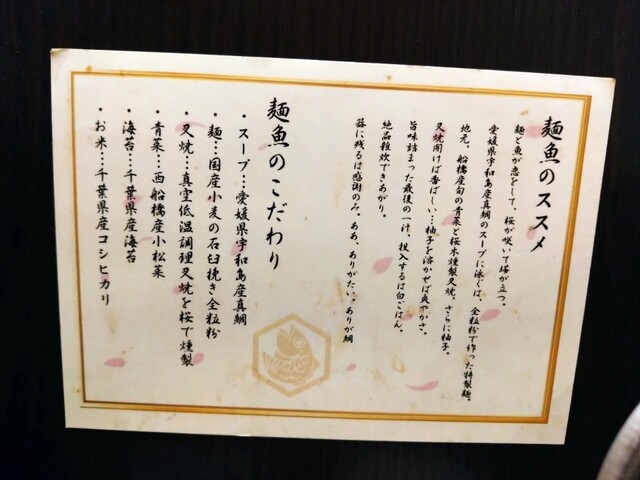 麺魚のススメ
麺と魚が恋をして、桜が咲いて塔が立つ。
愛媛県宇和島産真鯛のスープに泳ぐは、全粒粉で作った特製麺。
地元、船橋産旬の青菜と桜木燻製叉焼、さらに柚子。
叉焼開けば香ばしい…柚子を溶かせば爽やかさ。
旨味詰まった最後の一汁、投入するは白ごはん。
絶品雑炊できあがり。
器に残るは感謝のみ、ああ、ありがたい。ありが鯛
麺魚のこだわり
・スープ…愛媛県宇和島産真鯛
・麺…国産小麦の石臼挽き全粒粉
・叉焼…真空低温調理叉焼を桜で燻製
・青菜…西船橋産小松菜
・海苔…千葉県産海苔
・お米…千葉県産コシヒカリ